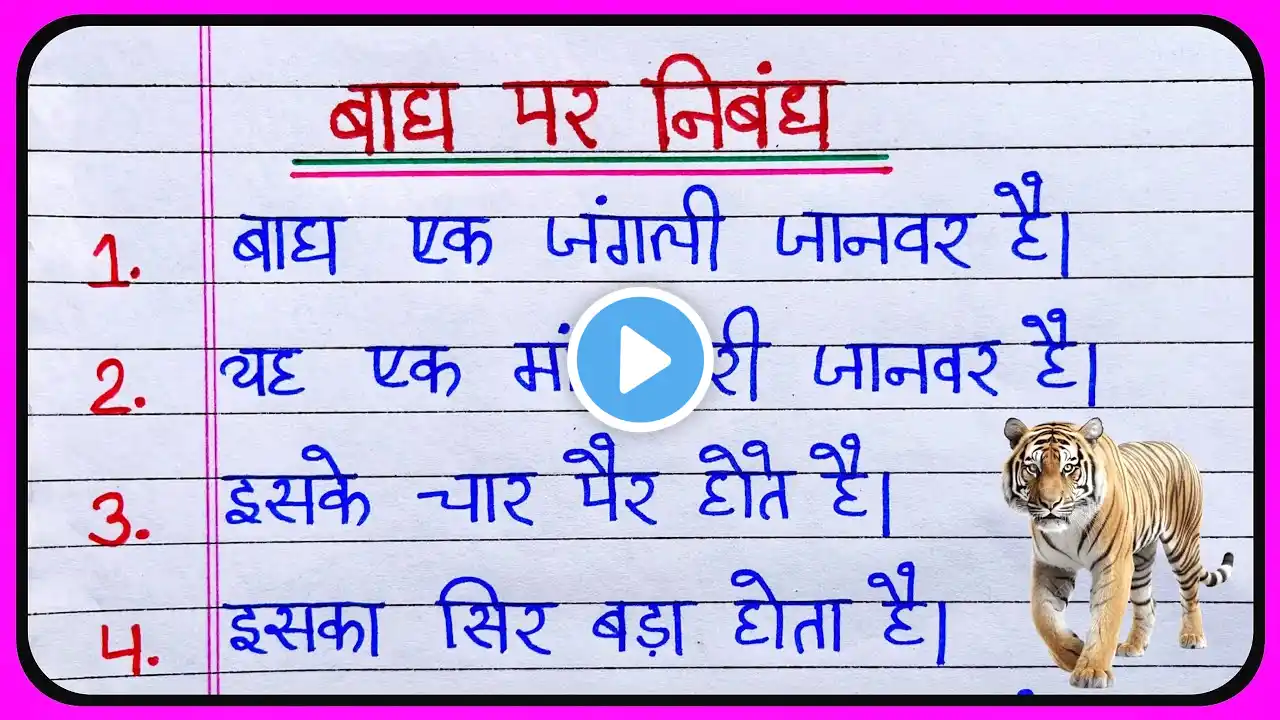 बाघ पर निबंध
1. बाघ एक जंगली जानवर है।
2. यह एक जानवर है।
3. इसके चार पैर होते है।
4. इसका सिर बड़ा होता है।